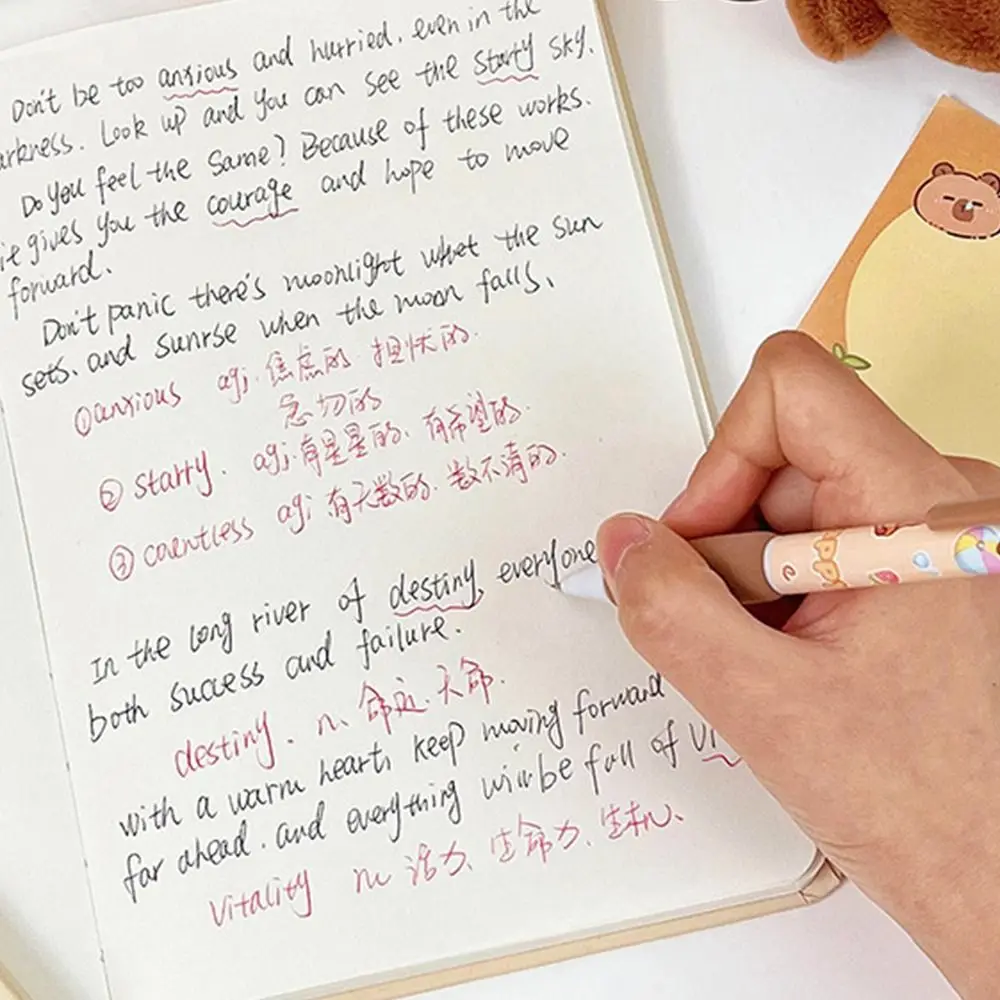 Don't be too anxious and hurried. even in the
arkness. Look up and you can see the starry sky.
Do you feel the same? Because of these works.
it gives you the courage and hope to move
forward.
Don't panic there's moonlight whet the sun
sets. and sunrse when the moon falls.
①anxious agj. 焦虑的. 担忧的.
急切的
② starry. agj. 有星星的. 有希望的.
③ countless agj 有无数的. 数不清的.
In the long river of destiny, everyone
both success and failure.
destiny. n. 命运. 天命.
with a warm heart, keep moving forward
far ahead. and everything will be full of vi
vitality n 活力、生命力、生机、